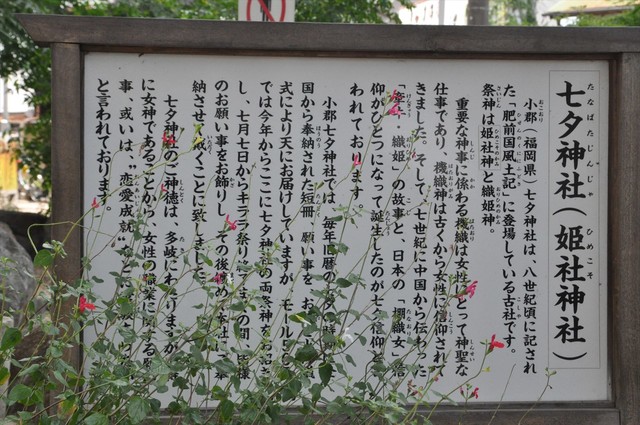 七夕神社(姫社神社)
たなばたじんじゃ ひめこそ
小郡(福岡県)七夕神社は、八世紀頃に記され
た「肥前国風土記」に登場している古社です。
祭神は姫社神と織姫神。
重要な神事に係わる機織は女性にとって神聖な
仕事であり、機織神は古くから女性に信仰されて
きました。そして、七世紀に中国から伝わった
織姫」の故事と、日本の「棚織女」
仰がひとつになって誕生したのが七夕信仰と
われております。
小郡七夕神社では、毎年旧暦の七夕の時
国から奉納された短冊、願い事を
式により天にお届けしていますが、モール
では今年からここに七夕神社の両祭神をお
し、七月七日からキララ祭り の間、皆様
のお願い事をお飾りし、その後 本社に
納させて戴くことに致しました。
七夕神社のご神徳は、多岐にわたりますが、
に女神であることから、女性の職業に 願
事、或いは、"恋愛成就"
と言われております。